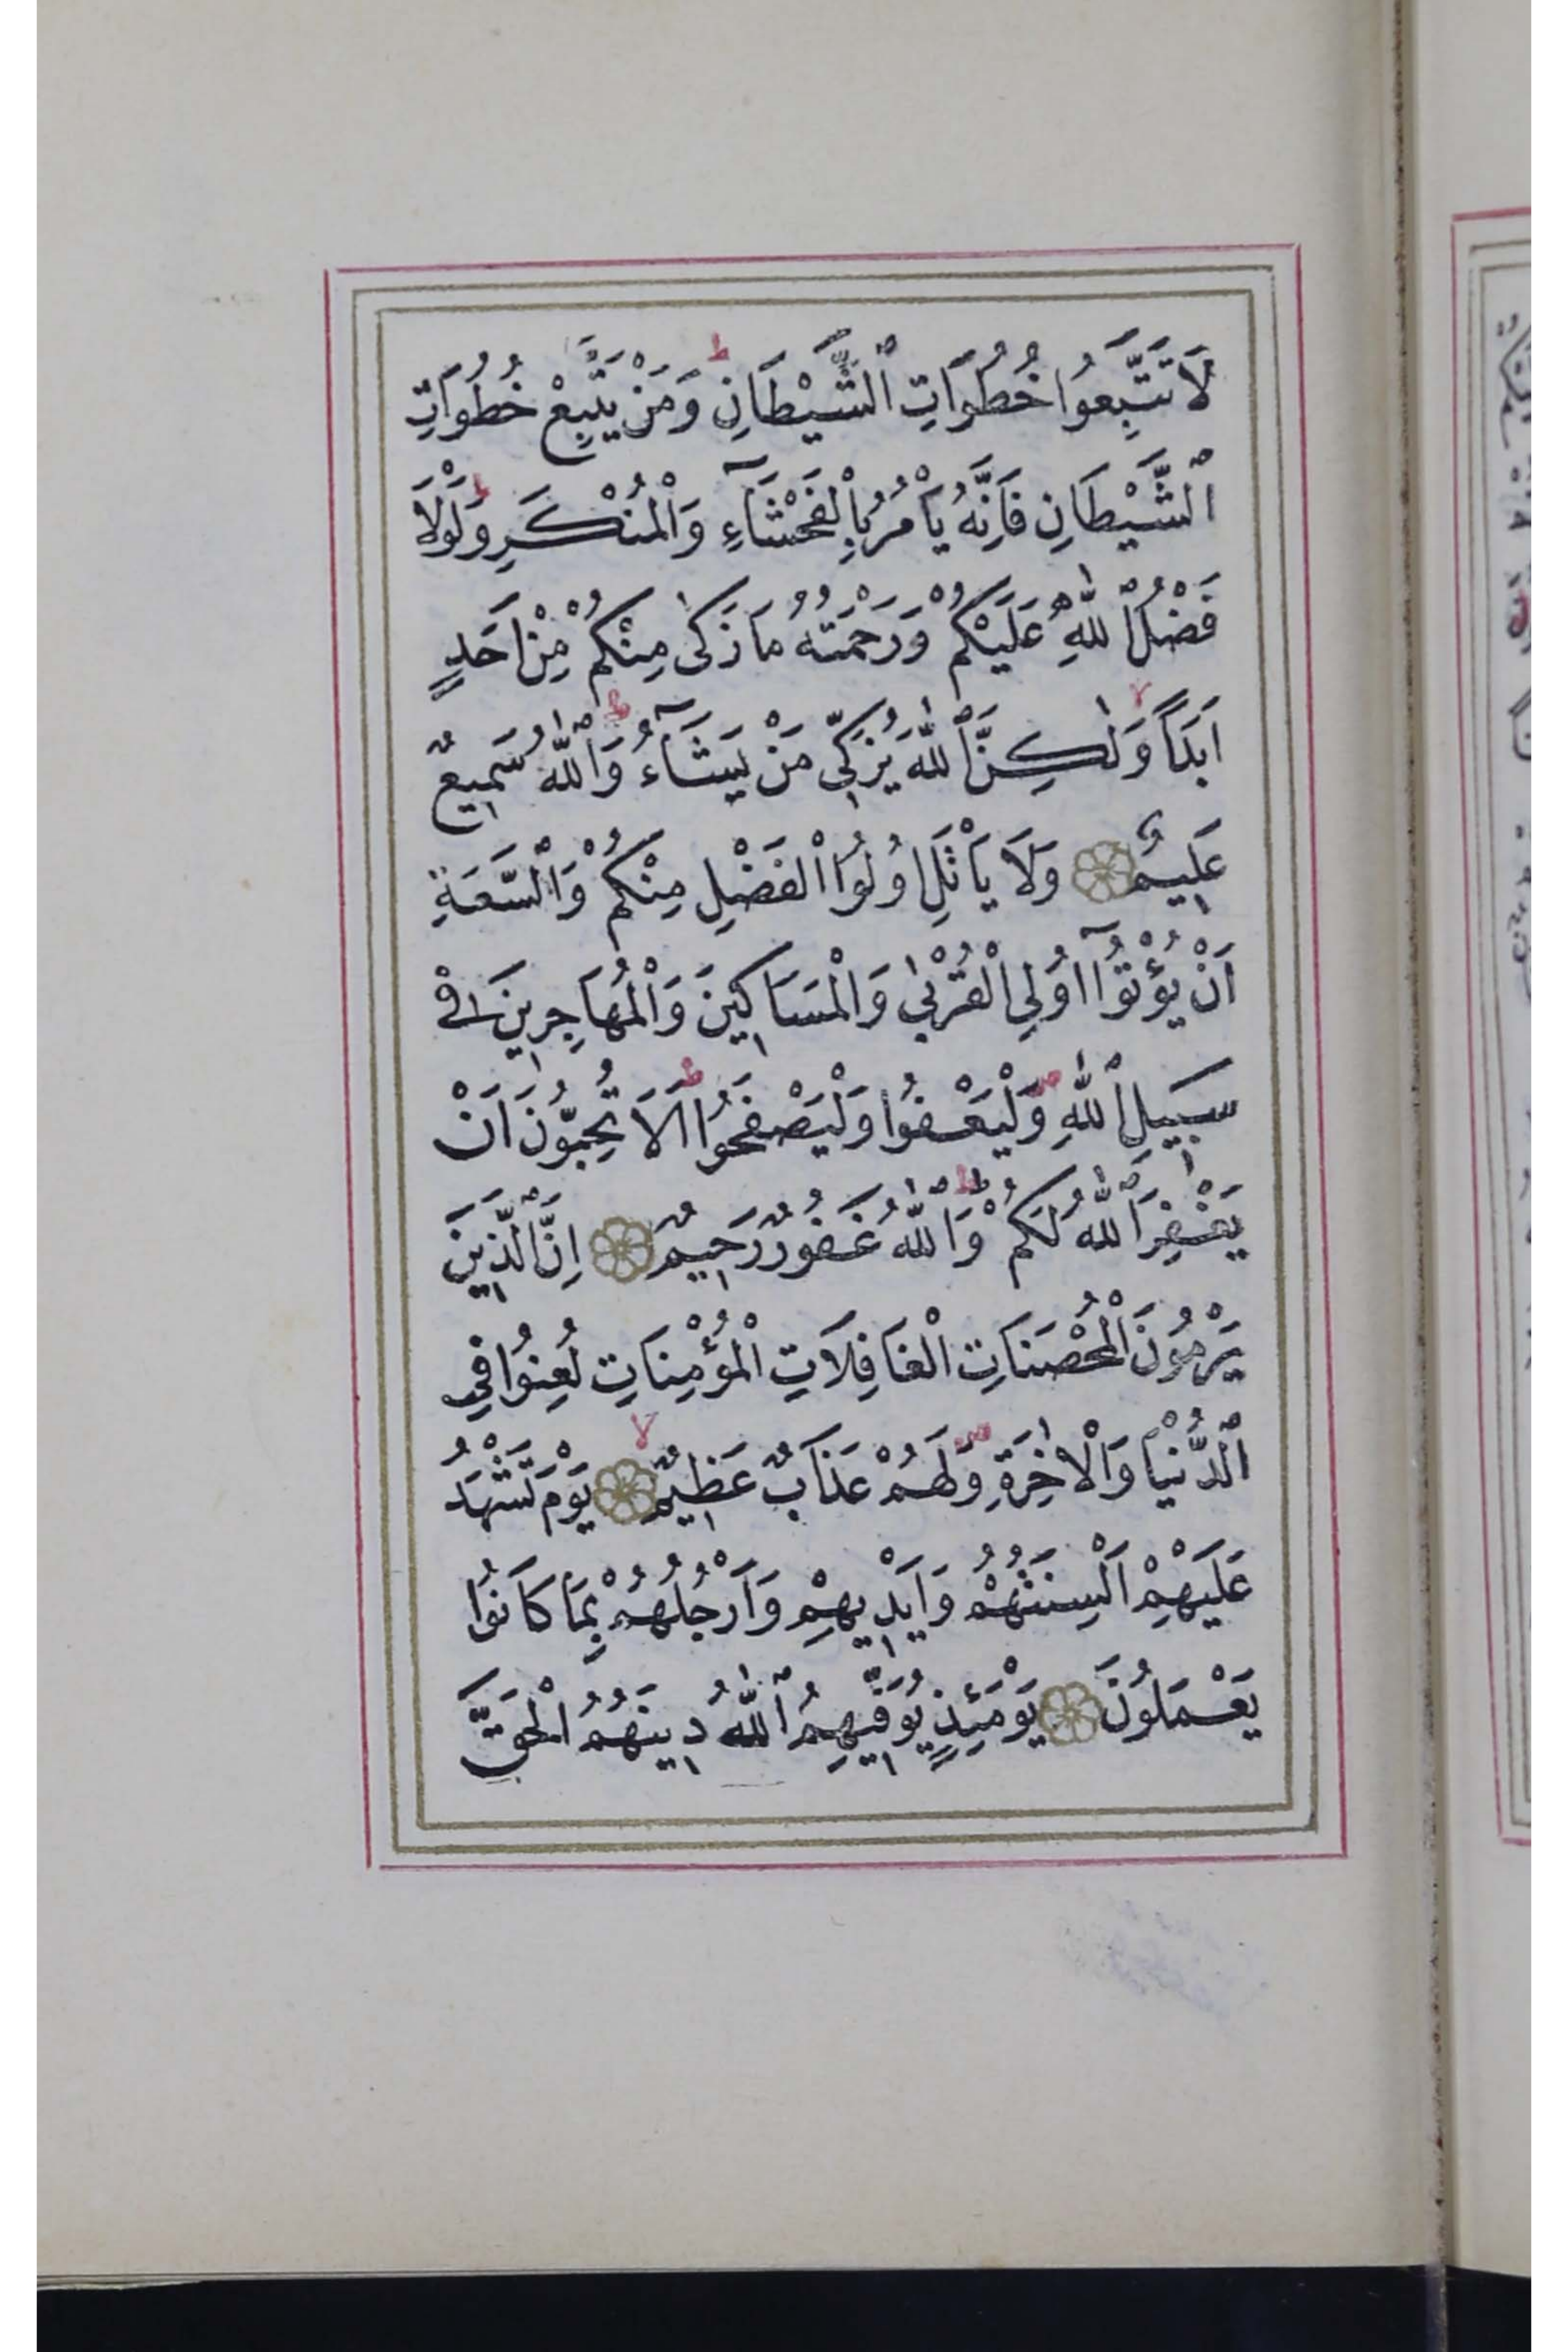 لَا تَتَّبِعُوا خُطُوَاتِ ٱلشَّيْطَانِ ط وَمَنْ يَتَّبِعْ خُطُوَاتِ
ٱلشَّيْطَانِ فَاِنَّهُ يَأْمُرُ بِالْفَحْشَآءِ وَالْمُنْكَرِ ط وَلَوْلَا
فَضْلُ ٱللّٰهِ عَلَيْكُمْ وَرَحْمَتُهُ مَا زَكٰى مِنْكُمْ مِنْ اَحَدٍ
اَبَدًا لا وَلٰكِنَّ ٱللّٰهَ يُزَكِّي مَنْ يَشَآءُ ط وَٱللّٰهُ سَمِيعٌ
عَلِيمٌ وَلَا يَأْتَلِ اُولُوا الْفَضْلِ مِنْكُمْ وَالسَّعَةِ
اَنْ يُؤْتُوٓا اُولِي الْقُرْبٰى وَالْمَسَاكِينَ وَالْمُهَاجِرِينَ فِي
سَبِيلِ ٱللّٰهِ ص وَلْيَعْفُوا وَلْيَصْفَحُوا ط اَلَا تُحِبُّونَ اَنْ
يَغْفِرَ ٱللّٰهُ لَكُمْ ط وَٱللّٰهُ غَفُورٌ رَحِيمٌ اِنَّ ٱلَّذِينَ
يَرْمُونَ الْمُحْصَنَاتِ الْغَافِلَاتِ الْمُؤْمِنَاتِ لُعِنُوا فِي
ٱلدُّنْيَا وَالْاٰخِرَةِ ص وَلَهُمْ عَذَابٌ عَظِيمٌ لا يَوْمَ تَشْهَدُ
عَلَيْهِمْ اَلْسِنَتُهُمْ وَاَيْدِيهِمْ وَاَرْجُلُهُمْ بِمَا كَانُوا
يَعْمَلُونَ يَوْمَئِذٍ يُوَفِّيهِمُ ٱللّٰهُ دِينَهُمُ الْحَقَّ